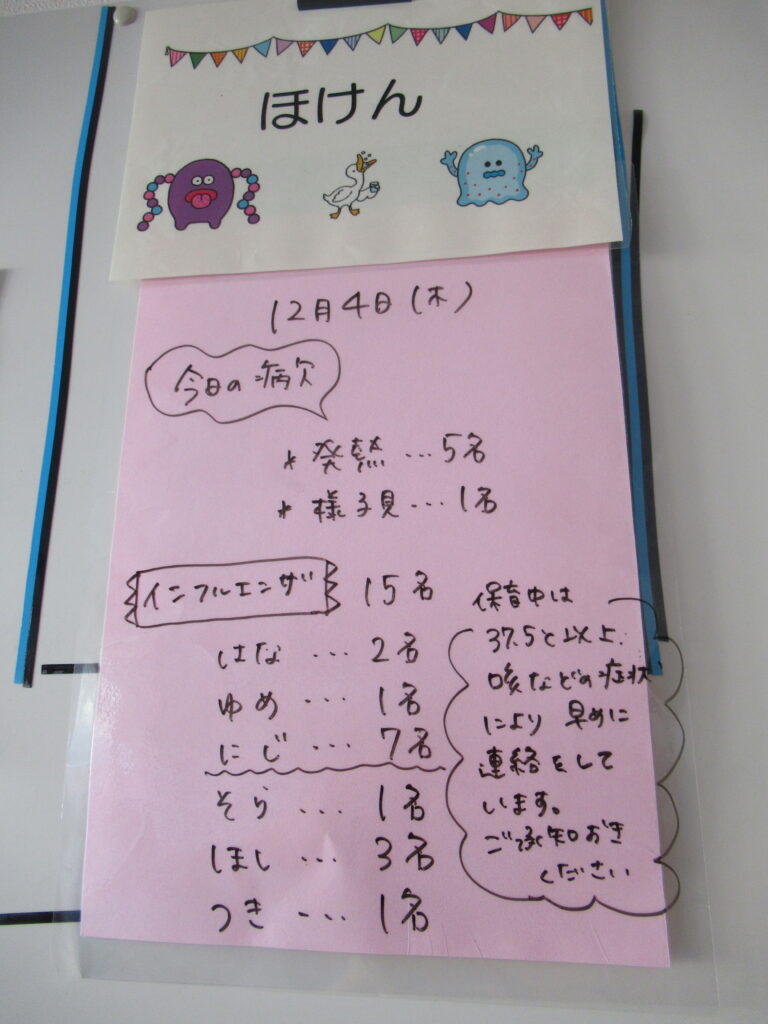 ほけん
12月4日(木)
今日の病欠
* 発熱 ... 5名
* 様子見 ... 1名
インフルエンザ 15名
はな ... 2名
ゆめ ... 1名
にじ ... 7名
そら ... 1名
ほし ... 3名
つき ... 1名
保育中は
37.5℃以上、
咳などの症状
により 早めに
連絡をして
います。
ご承知おき
ください